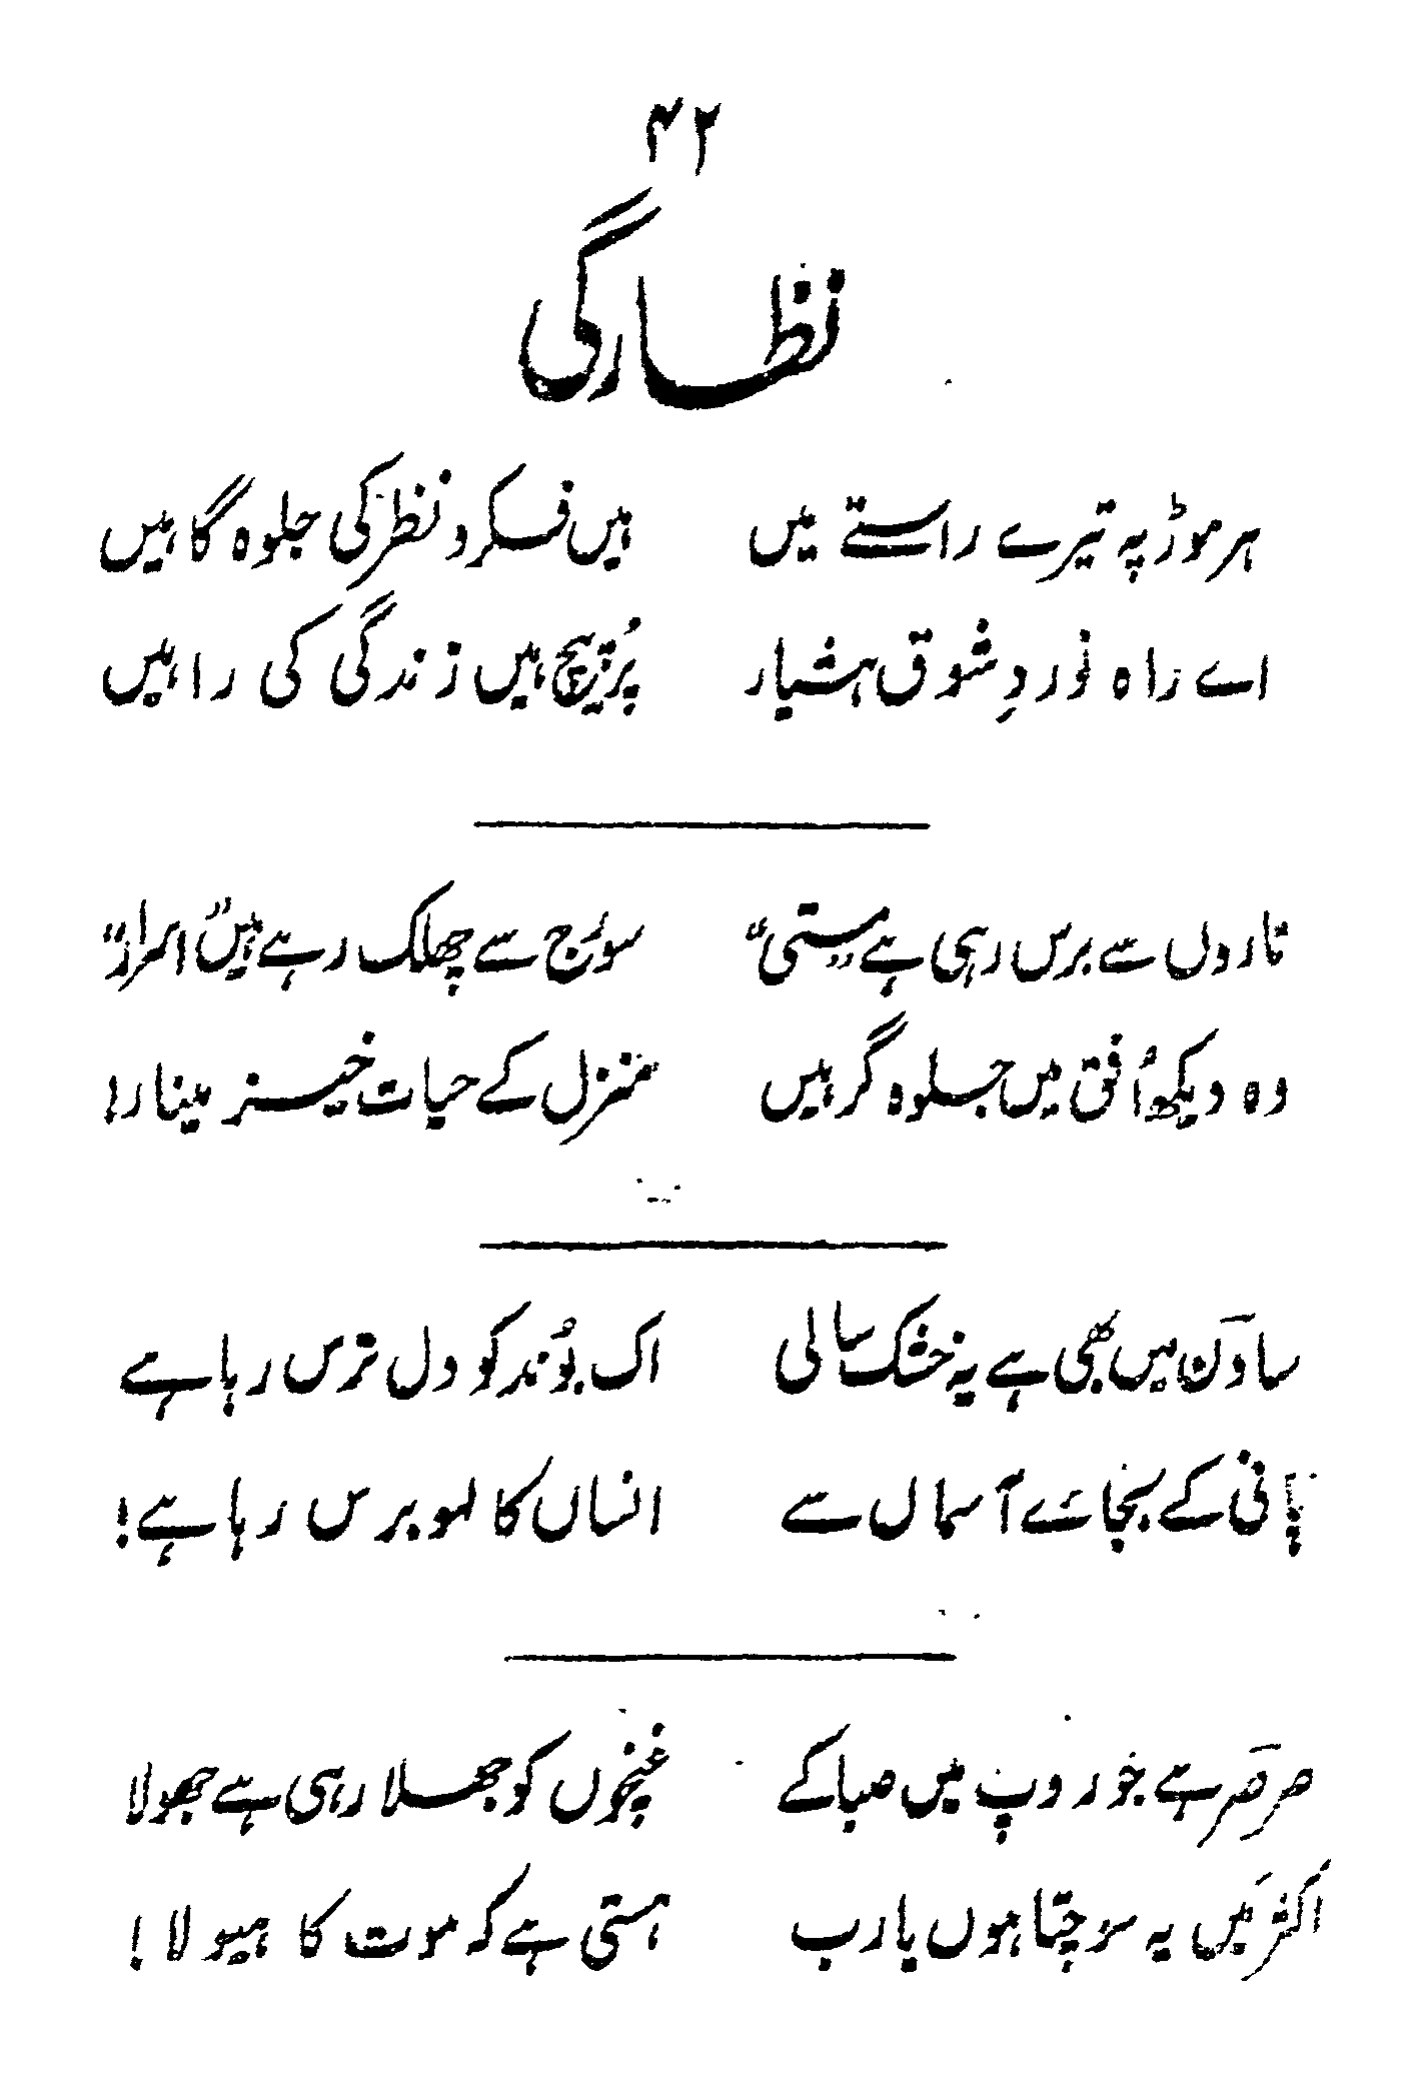 ۴۲
نظارگی
ہر موڑ پہ تیرے راستے میں ہیں فکر و نظر کی جلوہ گاہیں
اے راہ نَوردِ شوق ہشیار پُرپیچ ہیں زندگی کی راہیں
تاروں سے برس رہی ہے "مستی" سورج سے چھلک رہے ہیں "اسرار"
وہ دیکھ اُفق میں جلوہ گر ہیں منزل کے حیات خیز مینار!
ساوَن میں بھی ہے یہ خشک سالی اک بُوند کو دل ترس رہا ہے
پانی کے بجائے آسماں سے انساں کا لہو برس رہا ہے!
صرصَر ہے جو روپ میں صبا کے غنچوں کو جھلا رہی ہے جھولا
اَکثر مَیں یہ سوچتا ہوں یارب ہستی ہے کہ موت کا ہیولا!